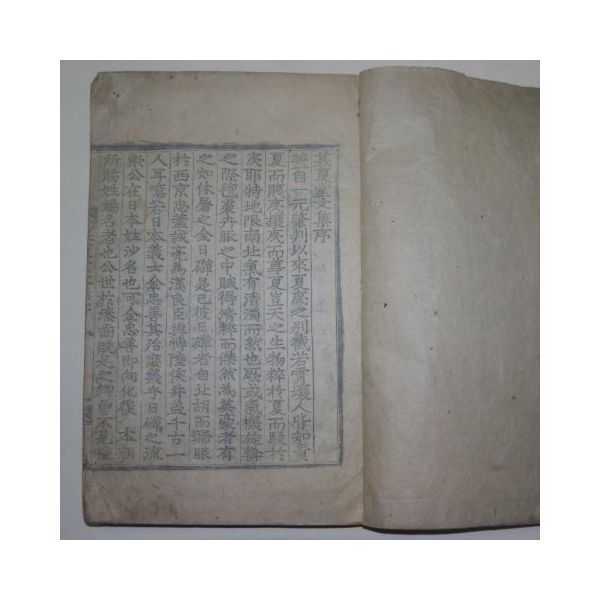 慕夏堂文集序
蓋自一元肇判以來夏夷之別截若霄壤人皆知貴
夏而賤夷攘夷而尊夏豈天之生物粹於夏而駁於
夷耶特地限南北氣有清濁而然也厥或氣機旋斡
之際氈裘卉服之中賦得清粹而傑然為英豪者有
之如休屠之金日磾是已彼日磾者自北胡而歸眼
於西京忠蓋誠亮為漢良臣與博陸侯并益千古一
人耳噫若日本義士金忠善其殆庶幾乎日磾之流
歟公在日本姓沙名也可金忠善即向化後 本朝
所賜姓賜名者也公世於漆齒既足之鄉曾不見禮